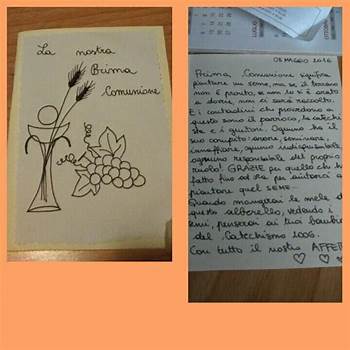 La nostra
Prima
Comunione
LUGLIO
OTTOBRE
08 MAGGIO 2016
Prima Comunione significa
piantare un seme, ma se il terreno
non è pronto, se non lo si è arato
a dovere, non ci sarà raccolto.
E i contadini che provvedono a
questo sono il parroco, la catechi
sta e i genitori. Ognuno ha il
suo compito: arare, seminare,
annaffiare, ognuno indispensabile,
ognuno responsabile del proprio
ruolo! GRAZIE per quello che h
fatto fino ad ora per aiutarci a
piantare quel SEME.
Quando mangerai le mele d
questo alberello, vedendo i
semi, penserai ai tuoi bambin
del Catechismo 2006.
Con tutto il nostro AFFET